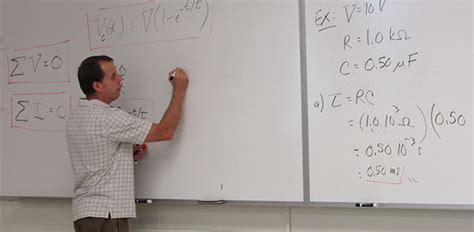 V_c(t) = V(1-e^{-t/τ})
ΣV=0
ΣI=0
Ex: V=10V
R=1.0 kΩ
C=0.50 μF
a) τ=RC
=(1.0 10^3 Ω)(0.50
=0.50 10^{-3} s
=0.50 ms